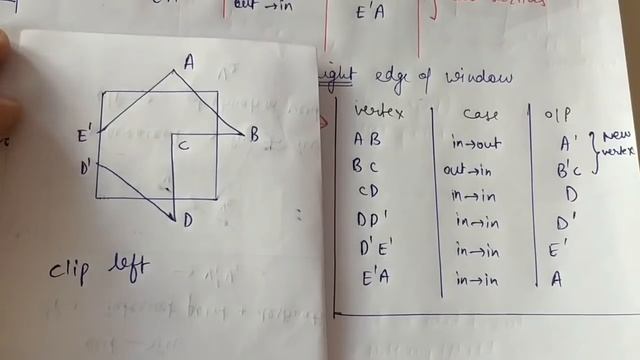 out→in
E'A
A
E'
B
C
D'
D
clip left
right edge of window
vertex case O/P
AB in→out A'
BC out→in B'C
CD in→in D
DD' in→in D'
D'E' in→in E'
E'A in→in A
New vertex